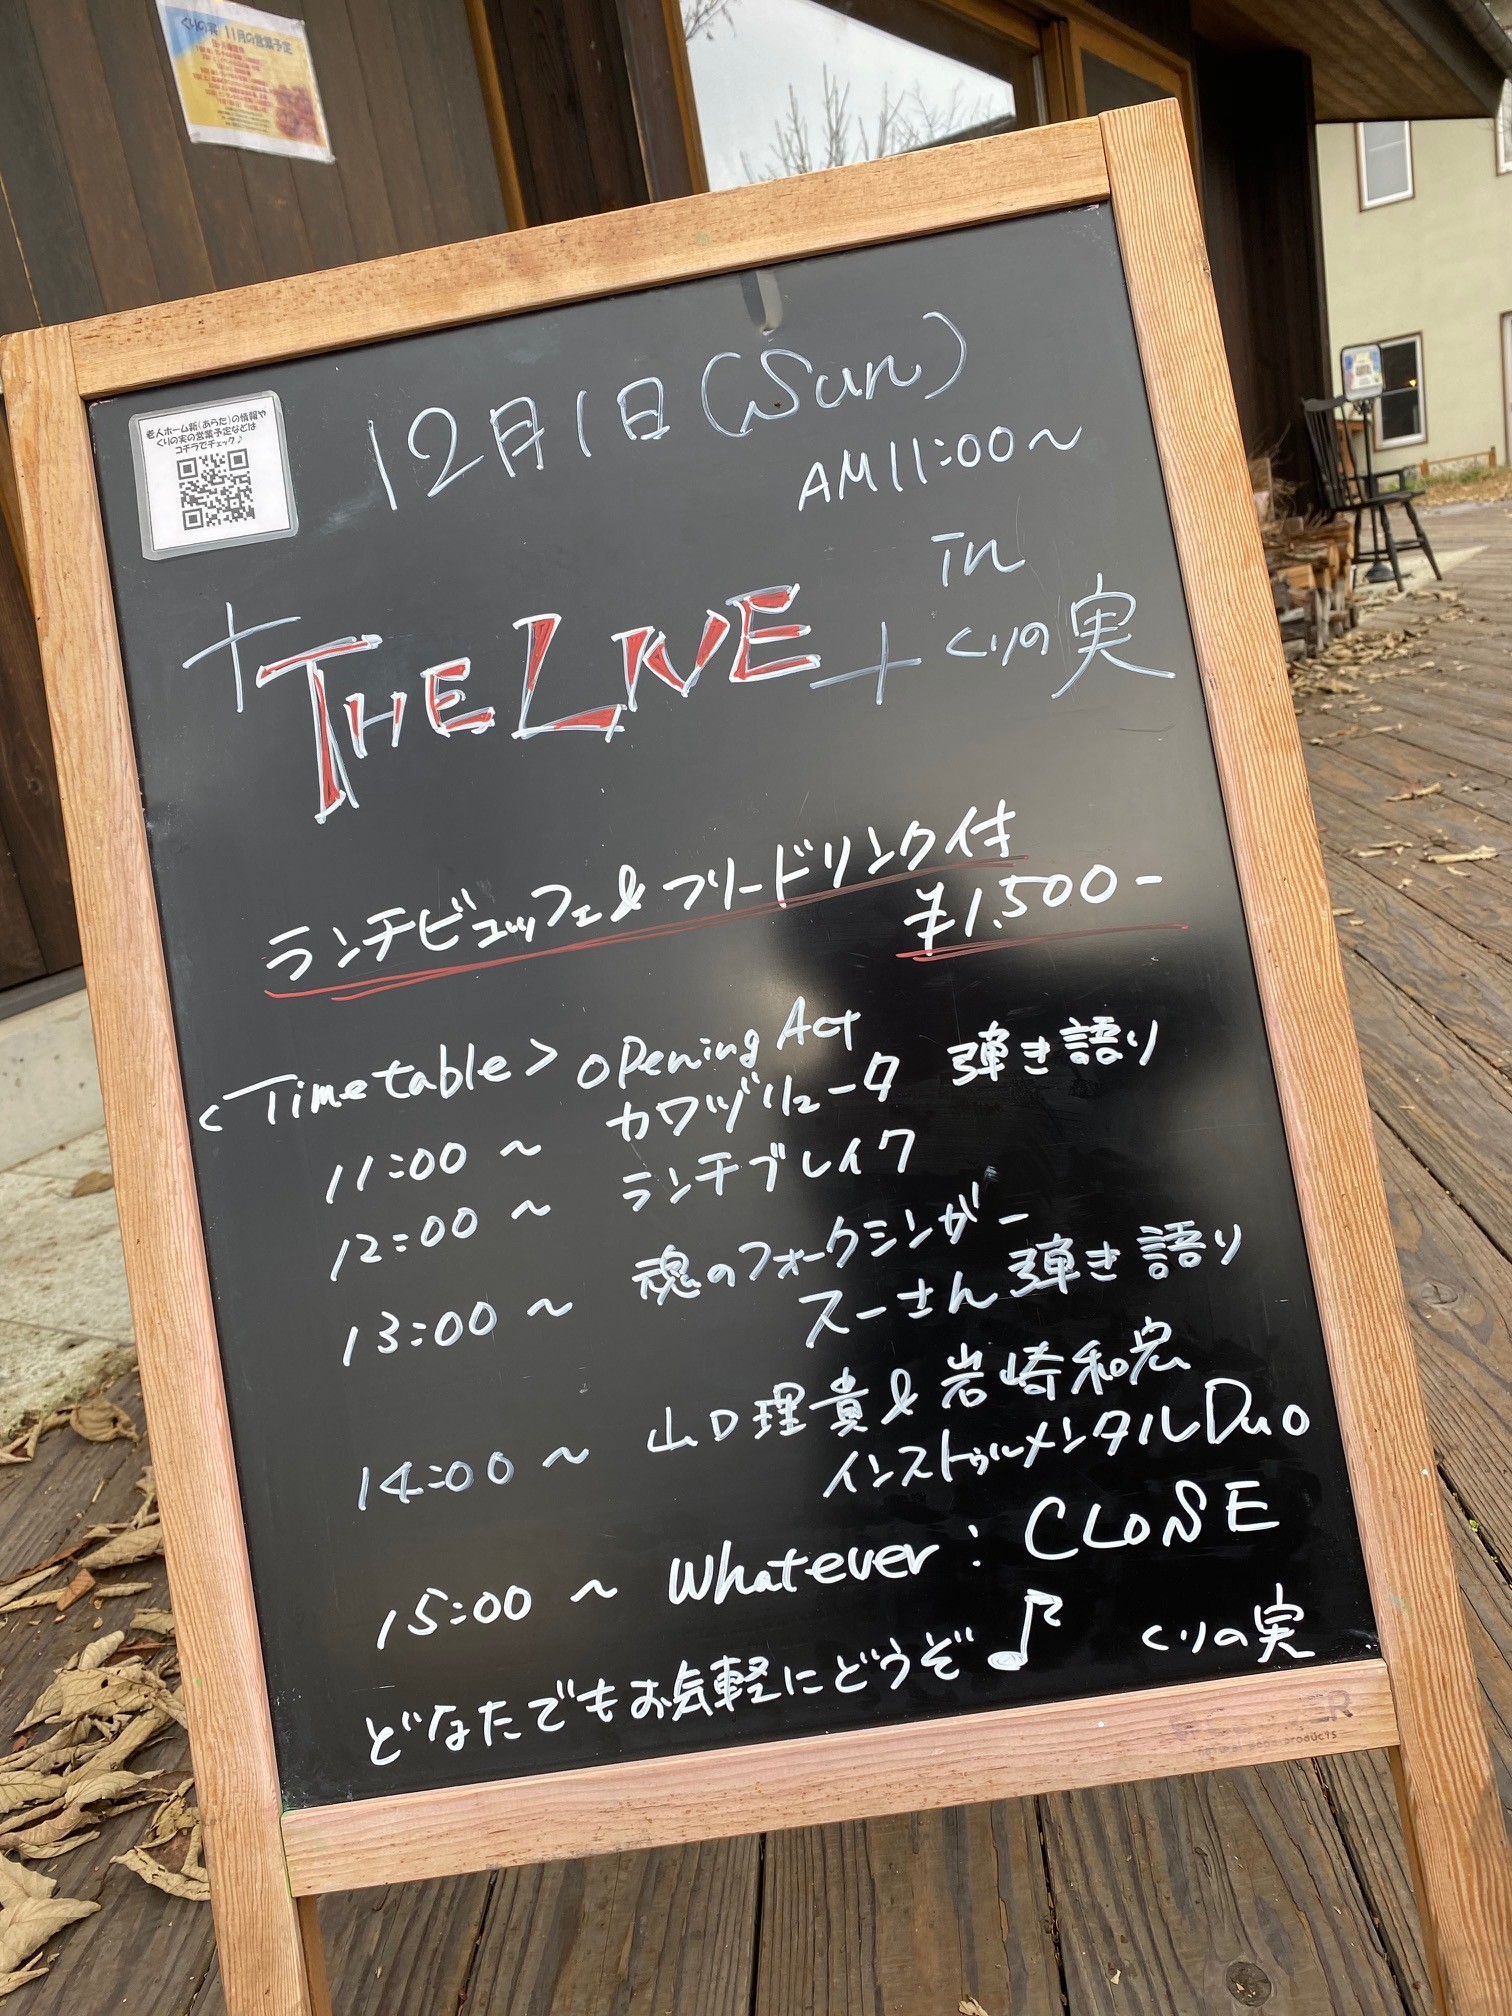 くりの実 11月の営業予定
老人ホーム新(あらた)の情報や
くりの実の営業予定などは
コチラでチェック♪
12月1日(Sun)
AM11:00～
+THE LIVE+
in
くりの実
ランチビュッフェ&フリードリンク付
¥1.500-
<Timetable> Opening Act
11:00 ～ カワヅリュータ 弾き語り
12:00 ～ ランチブレイク
13:00 ～ 魂のフォークシンガー
スーさん 弾き語り
14:00 ～ 山口理貴&岩崎和宏
インストゥルメンタルDuo
15:00 ～ Whatever : CLOSE
どなたでもお気軽にどうぞ♪ くりの実